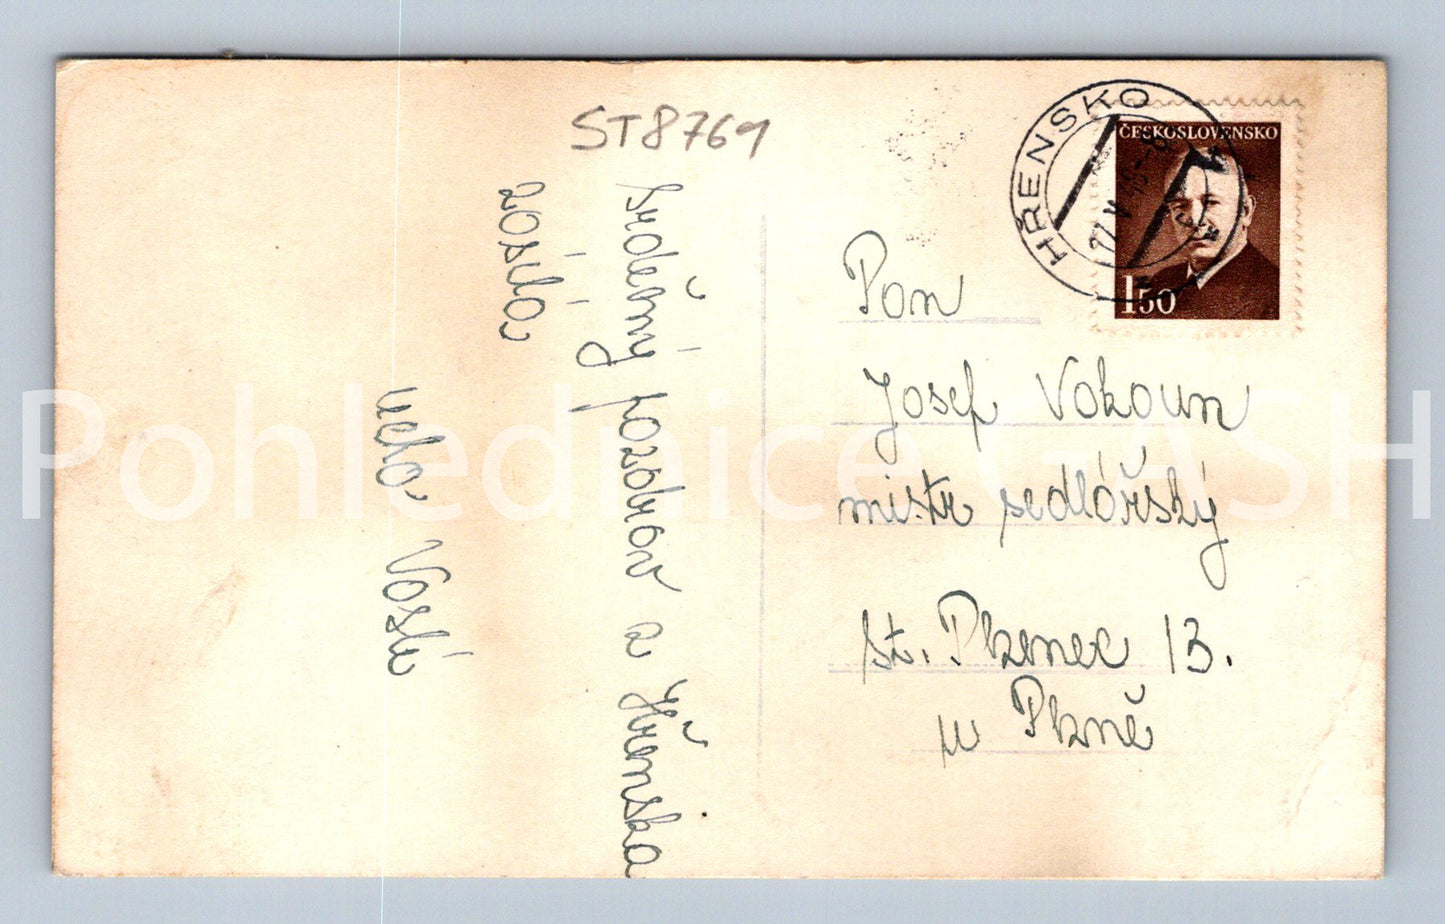 ST8769
Srdečný pozdrav z Hřenska
zasílá
HŘENSKO
ČESKOSLOVENSKO
1 50
Pan
Josef Vokoun
mistr sedlářský
St. Plzenec 13.
u Plzně
Pohlednice GASH